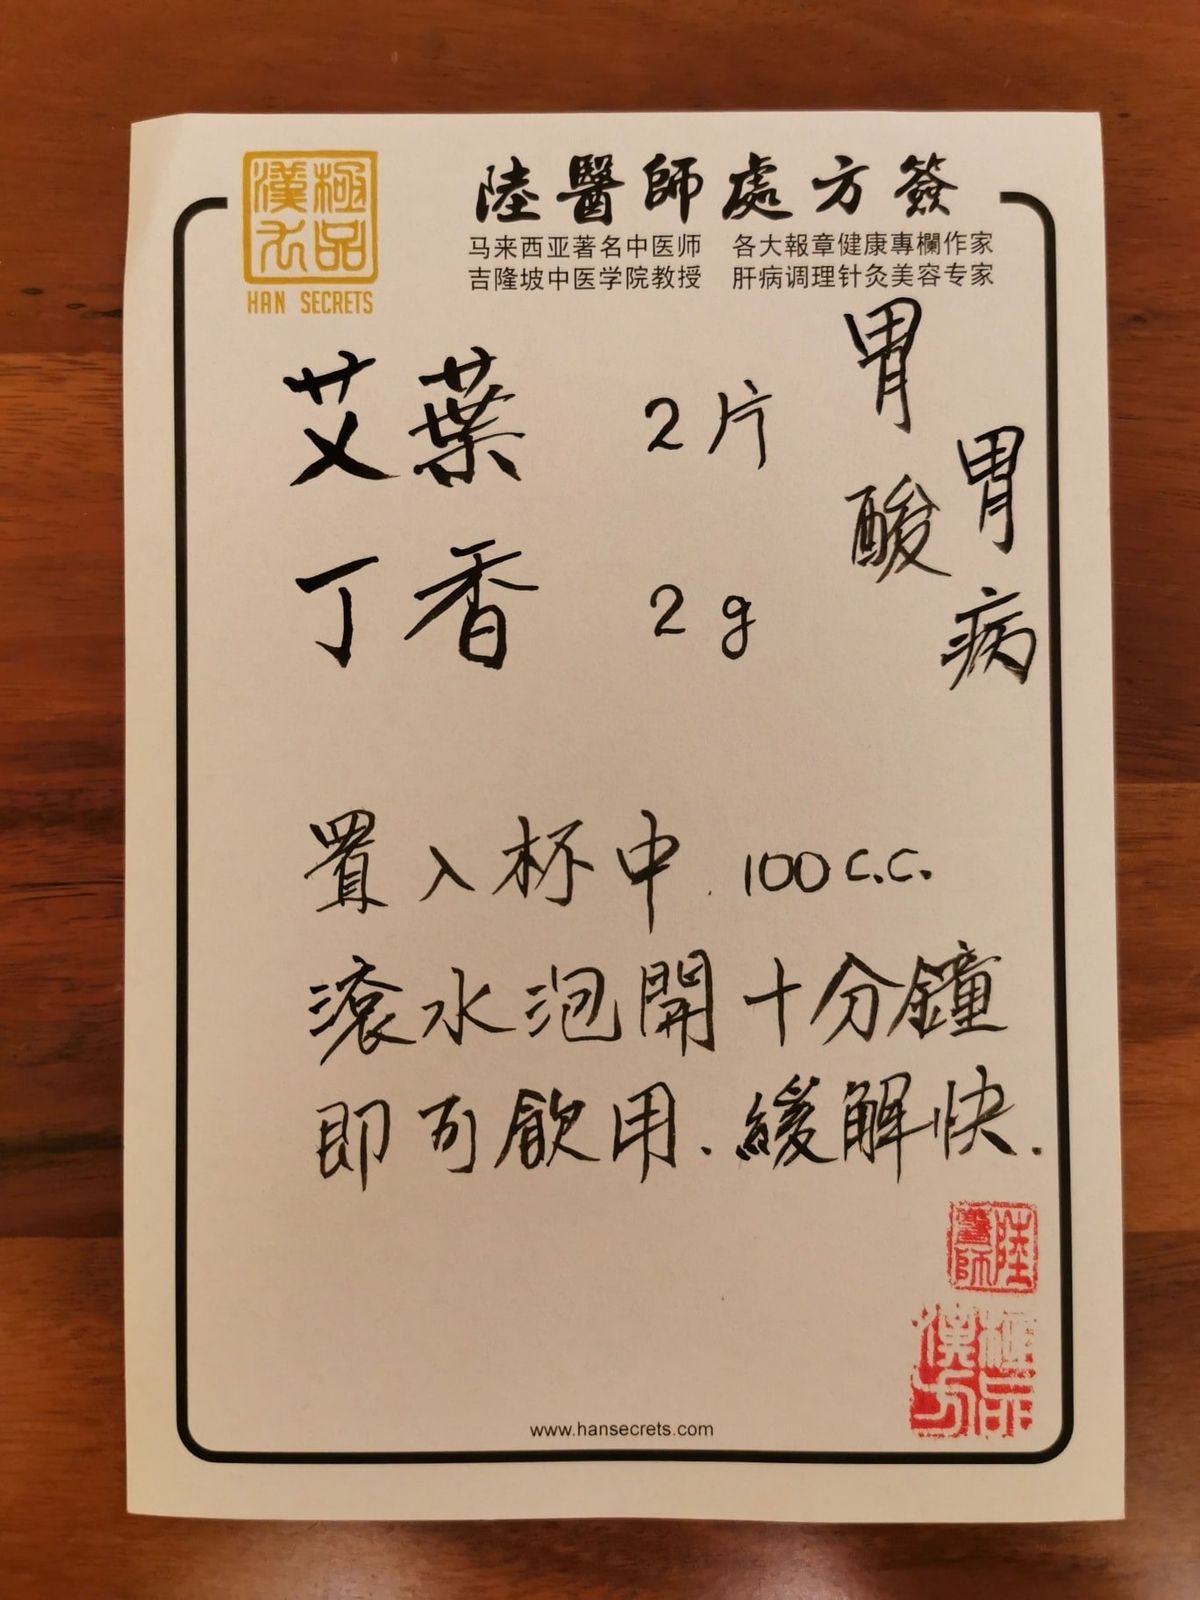 極品漢方
HAN SECRETS
陸醫師處方簽
马来西亚著名中医师 各大報章健康專欄作家
吉隆坡中医学院教授 肝病调理针灸美容专家
胃病
胃酸
艾葉 2片
丁香 2g
置入杯中 100c.c.
滾水泡開十分鐘
即可飲用.緩解快.
陸醫師
極品漢方
www.hansecrets.com